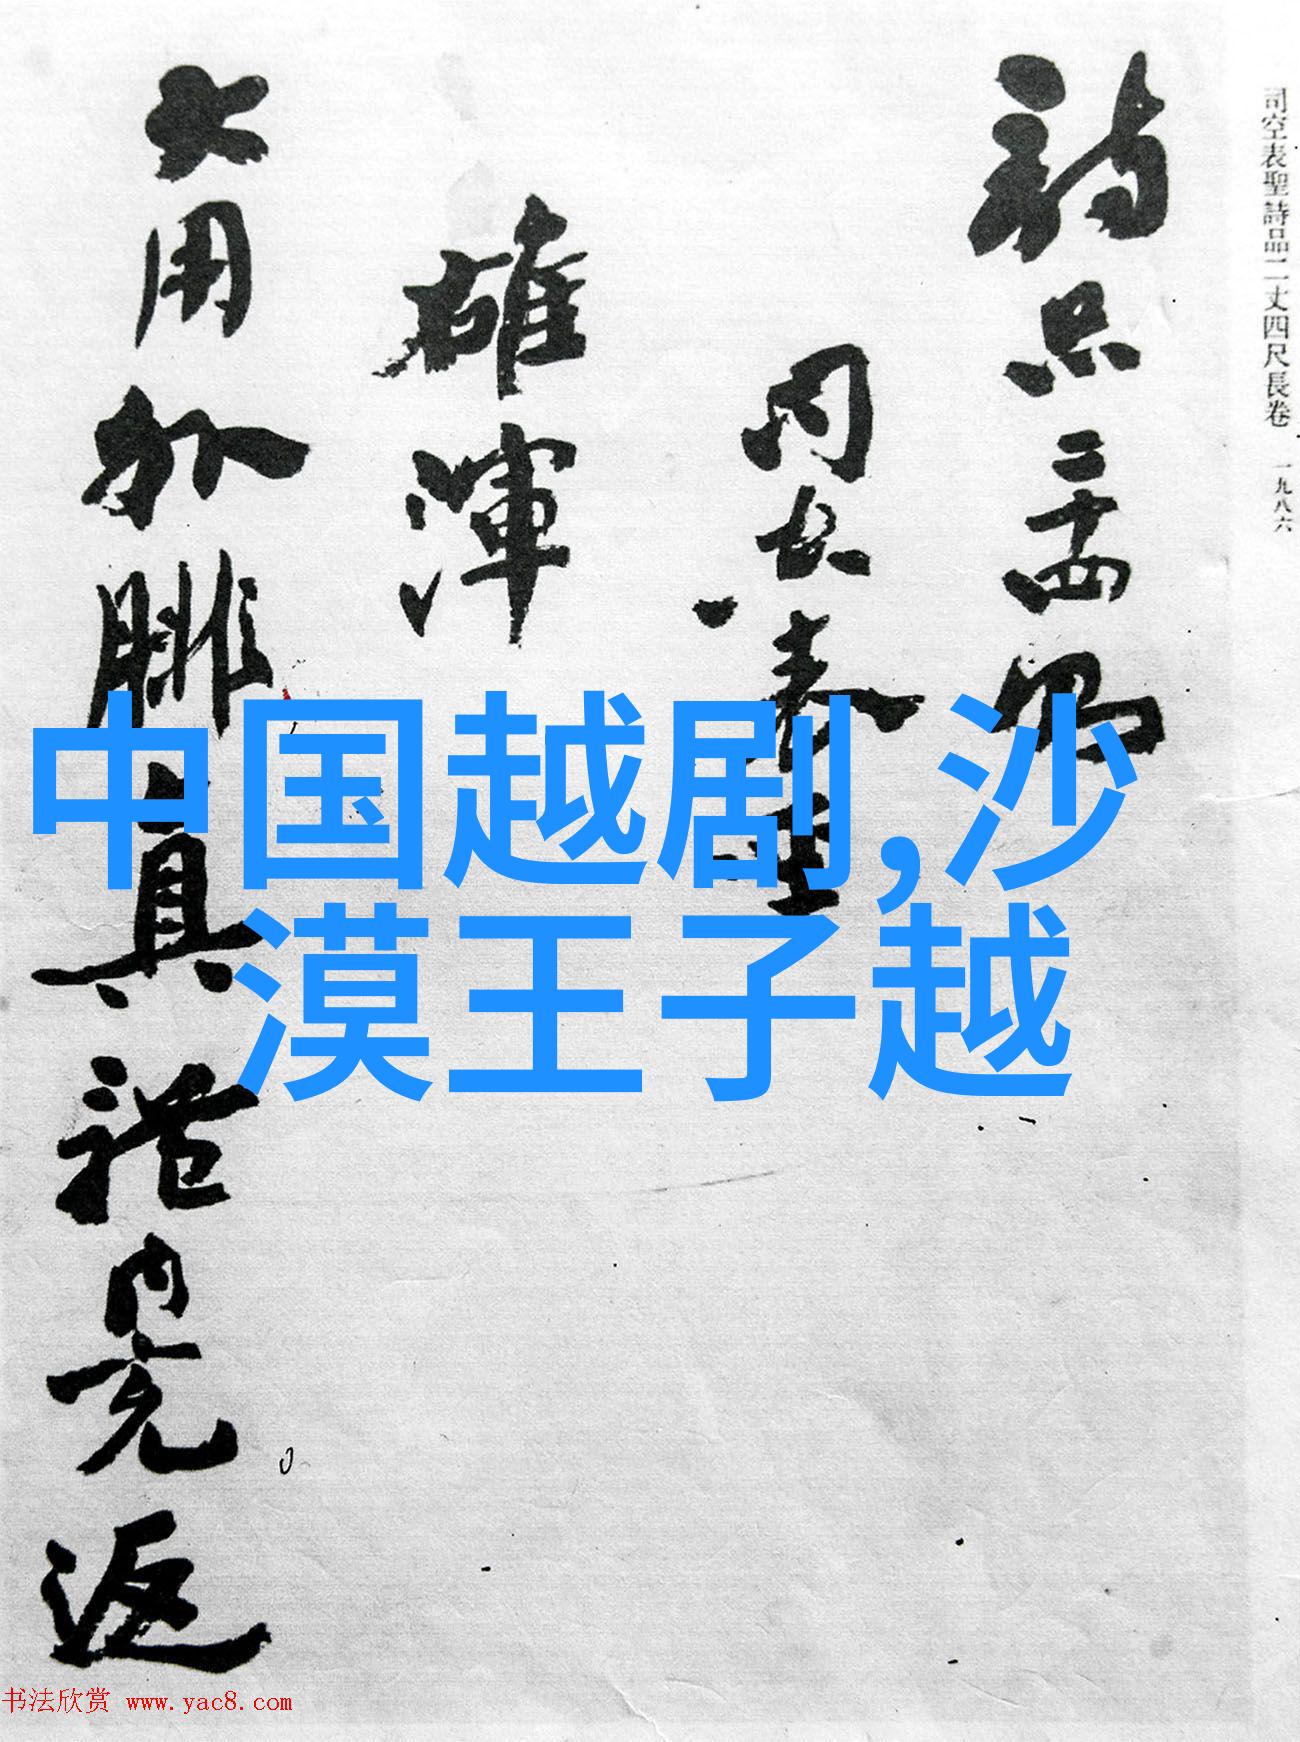 司空表聖詩品二丈四尺長卷 一九八六
詩品二十四
雄渾
大用外腓真體内充返
中国越剧,沙
漠王子越
书法欣赏 www.yac8.com